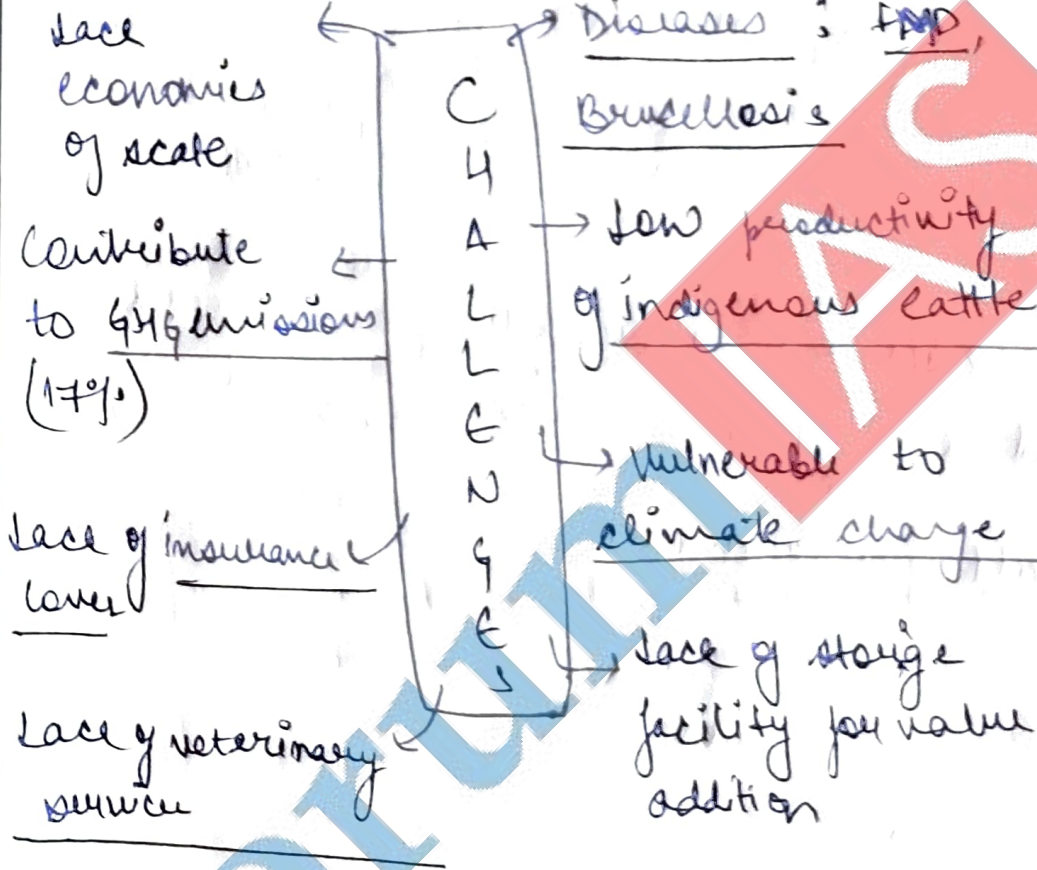 Lack
economies
of scale
Contribute
to GHG emissions
(17%)
Lack of insurance
cover
Lack of veterinary
service
CHALLENGES
Diseases : FMD,
Brucellosis
Low productivity
of indigenous cattle
Vulnerable to
climate change
Lack of storage
facility for value
addition
IAS
orum